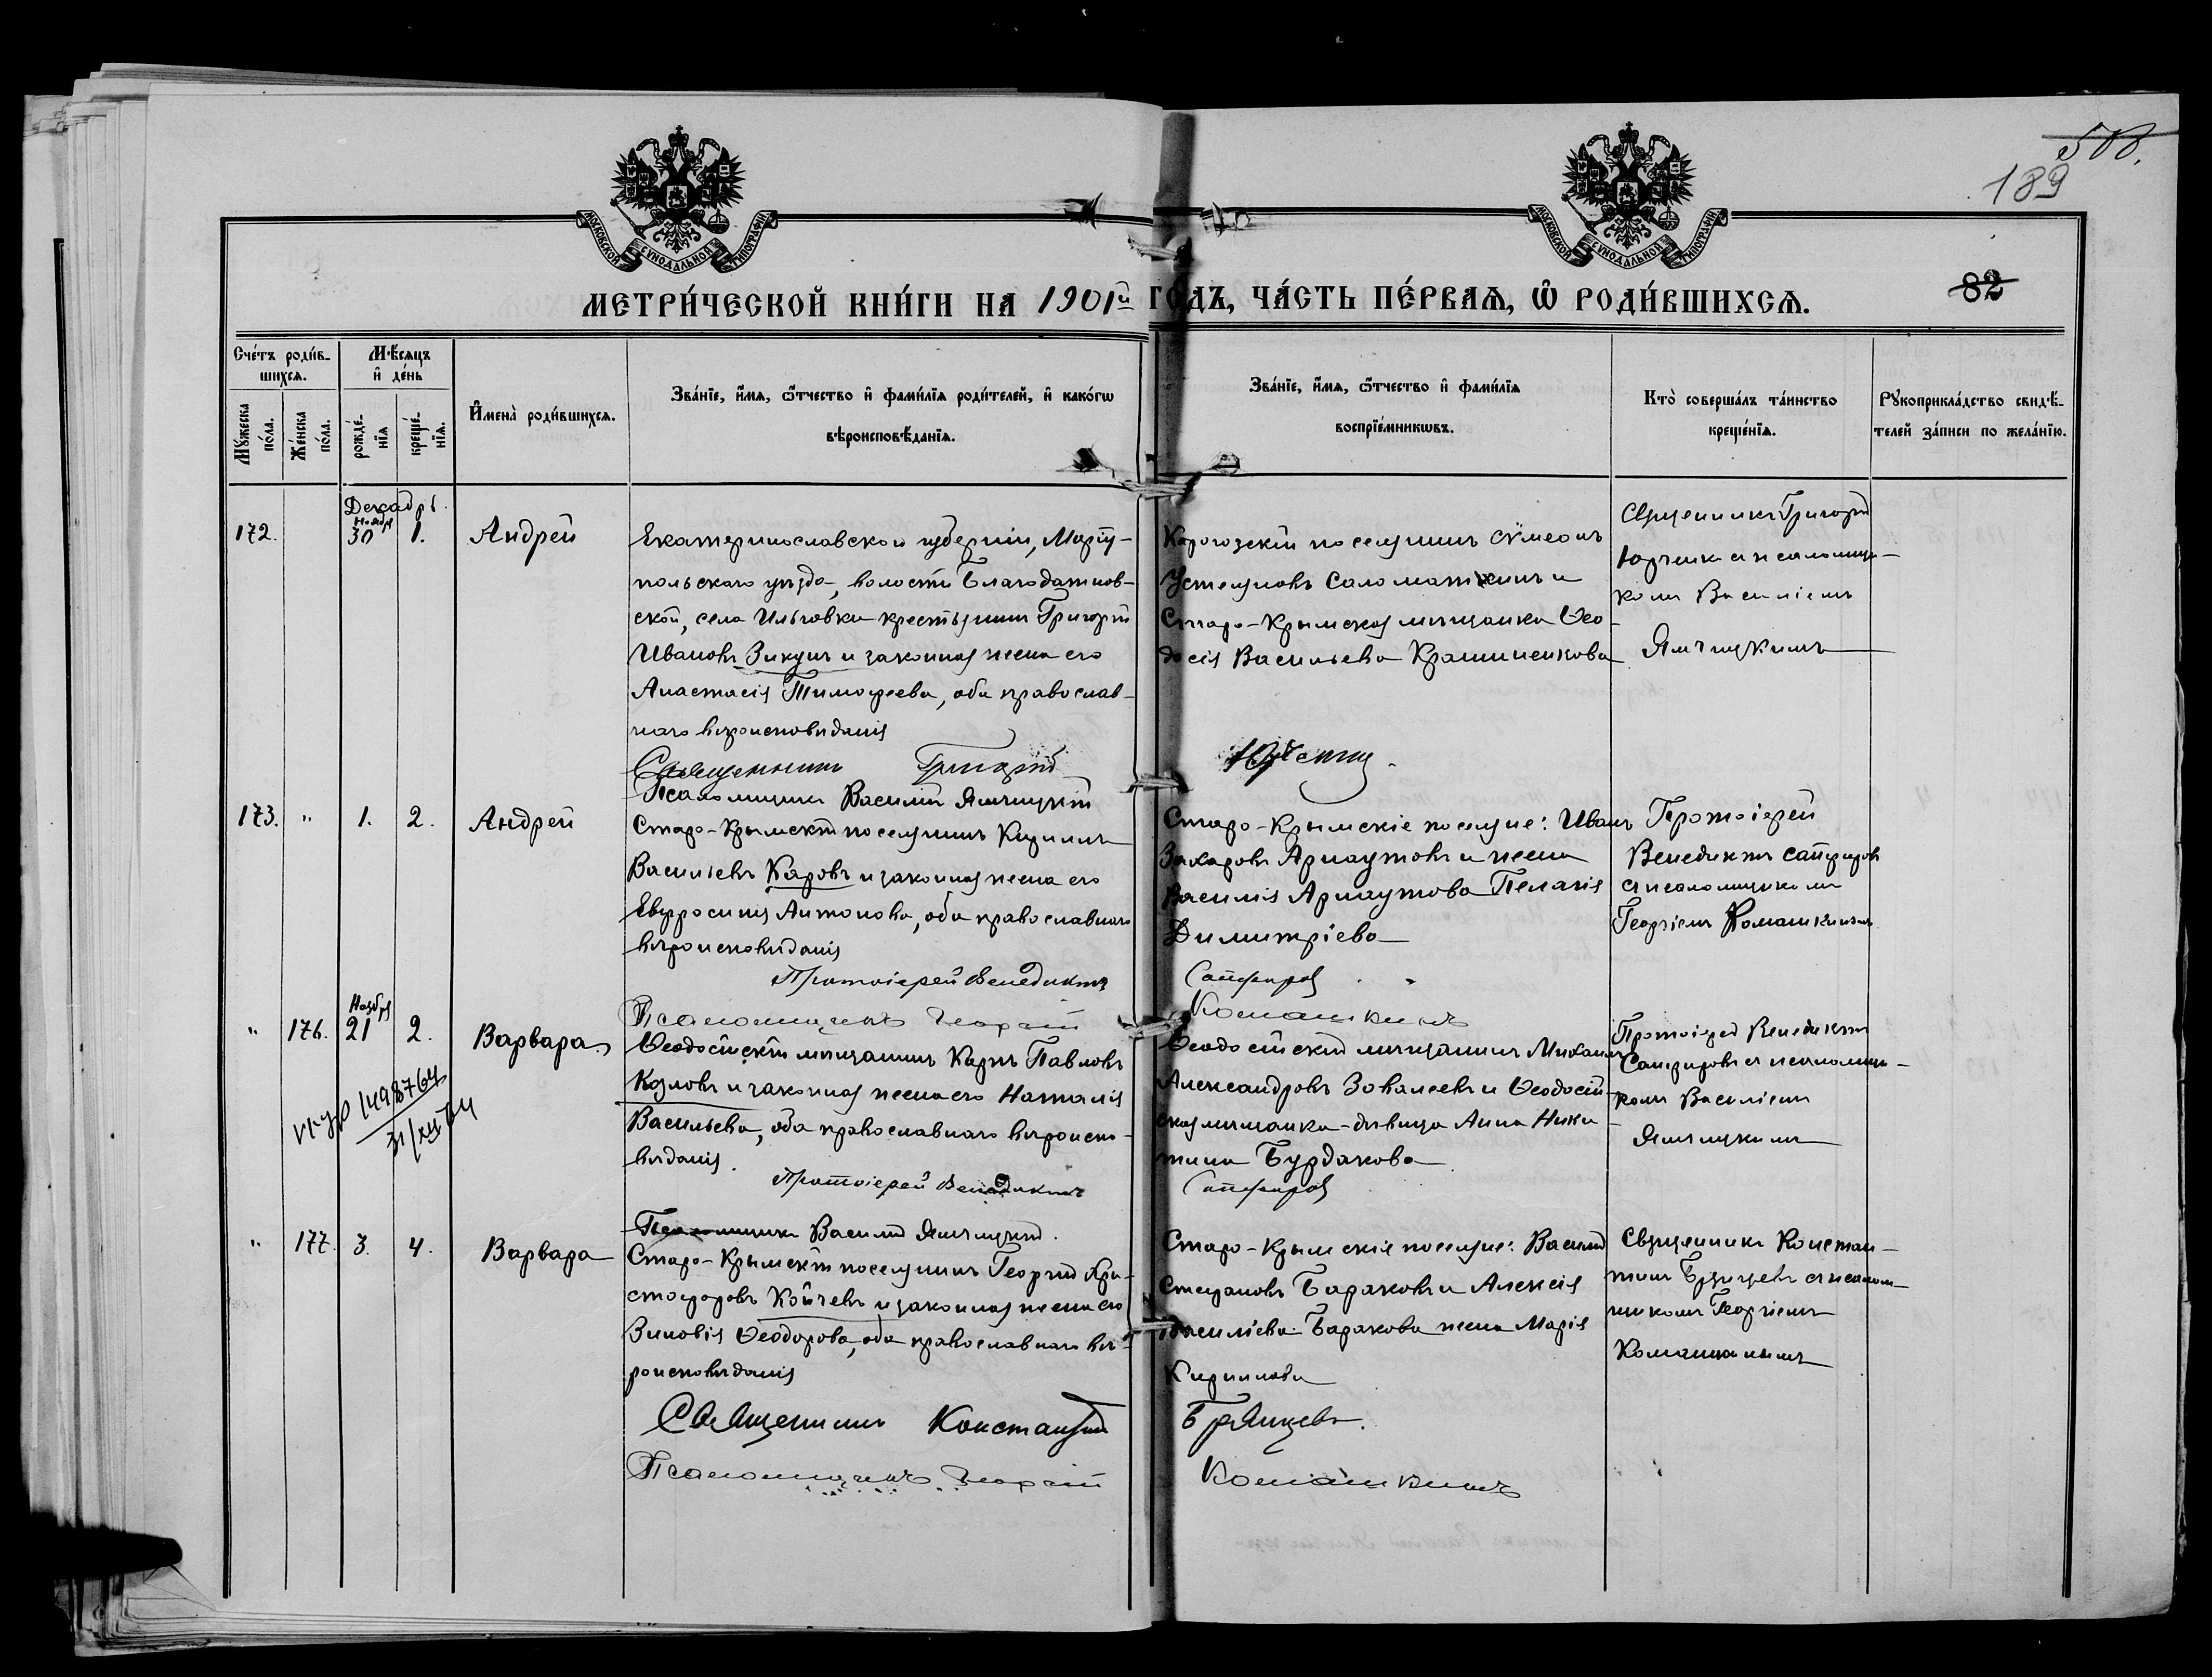 508.
189
82
МОСКОВСКОЙ СѴНОДАЛЬНОЙ ТИПОГРАФІИ
МОСКОВСКОЙ СѴНОДАЛЬНОЙ ТИПОГРАФІИ
МЕТРИ́ЧЕСКОЙ КНИ́ГИ НА 1901й ГО́ДЪ, ЧА́СТЬ ПЕ́РВАѦ, Ѡ РОДИ́ВШИХСѦ.
Сче́тъ роди́в-
шихсѧ.
Мꙋ́жеска
по́ла.
Же́нска
по́ла.
Мѣ́сѧцъ
и҆ де́нь
рожде́-
нїѧ
креще́-
нїѧ.
И҆мена̀ роди́вшихсѧ.
Зва́нїе, и҆́мѧ, ѻ҆́тчество и҆ фами́лїѧ роди́телей, и҆ како́гѡ
вѣроисповѣ́данїѧ.
Зва́нїе, и҆́мѧ, ѻ҆́тчество и҆ фами́лїѧ
воспрїе́мникѡвъ.
Кто̀ соверша́лъ та́инство
креще́нїѧ.
Рꙋкоприкла́дство свидѣ́-
телей за́писи по жела́нїю.
Декабрь.
172.
Ноября
30
1.
Андрей
Екатеринославской губерніи, Маріу-
польскаго уѣзда, волости Благодатнов-
ской, села Ильговки крестьянинъ Григорій
Ивановъ Зикунъ и законная жена его
Анастасія Тимофеева, оба православ-
наго вѣроисповѣданія
Священникъ Григорій
Псаломщикъ Василій Ямчицкій
поселянинъ Сѵмеонъ
Саломатинъ и
Старо-Крымская мѣщанка Ѳео-
досія Васильева Крашненкова
Юрченко.
Священникъ Григорій
Юрченко съ псаломщи-
комъ Василіемъ
Ямчицкимъ
173. " 1. 2.
Андрей
Старо-Крымскій поселянинъ Кириллъ
Васильевъ Каровъ и законная жена его
Евфросинія Антонова, оба православнаго
вѣроисповѣданія
Протоіерей Венедиктъ
Псаломщикъ Георгій
Старо-Крымскіе поселяне: Иванъ
Захаровъ Арнаутовъ и жена
Василія Арнаутова Пелагія
Димитріева
Сапфировъ
Комашкинъ
Протоіерей
Венедиктъ Сапфировъ
съ псаломщикомъ
Георгіемъ Комашкинымъ
Ноября
" 176. 21 2.
Варвара
1498764
31/XII 64
Ѳеодосійскій мѣщанинъ Карпъ Павловъ
Козловъ и законная жена его Наталія
Васильева, оба православнаго вѣроиспо-
вѣданія.
Протоіерей Венедиктъ
Псаломщикъ Василій Ямчицкій.
Ѳеодосійскій мѣщанинъ Михаилъ
Александровъ Завалеевъ и Ѳеодосій-
ская мѣщанка-дѣвица Анна Ники-
тина Бурдакова
Сапфировъ
Протоіерей Венедиктъ
Сапфировъ съ псаломщи-
комъ Василіемъ
Ямчицкимъ
" 177. 3. 4.
Варвара
Старо-Крымскій поселянинъ Георгій Хри-
стофоровъ Койчевъ и законная жена его
Зиновія Ѳеодорова, оба православнаго вѣ-
роисповѣданія
Священникъ Константинъ
Псаломщикъ Георгій
Старо-Крымскіе поселяне: Василій
Степановъ Бараковъ и Алексія
Василіева Баракова жена Марія
Кириллова
Брянцевъ.
Комашкинъ
Священникъ Констан-
тинъ Брянцевъ съ псалом-
щикомъ Георгіемъ
Комашкинымъ